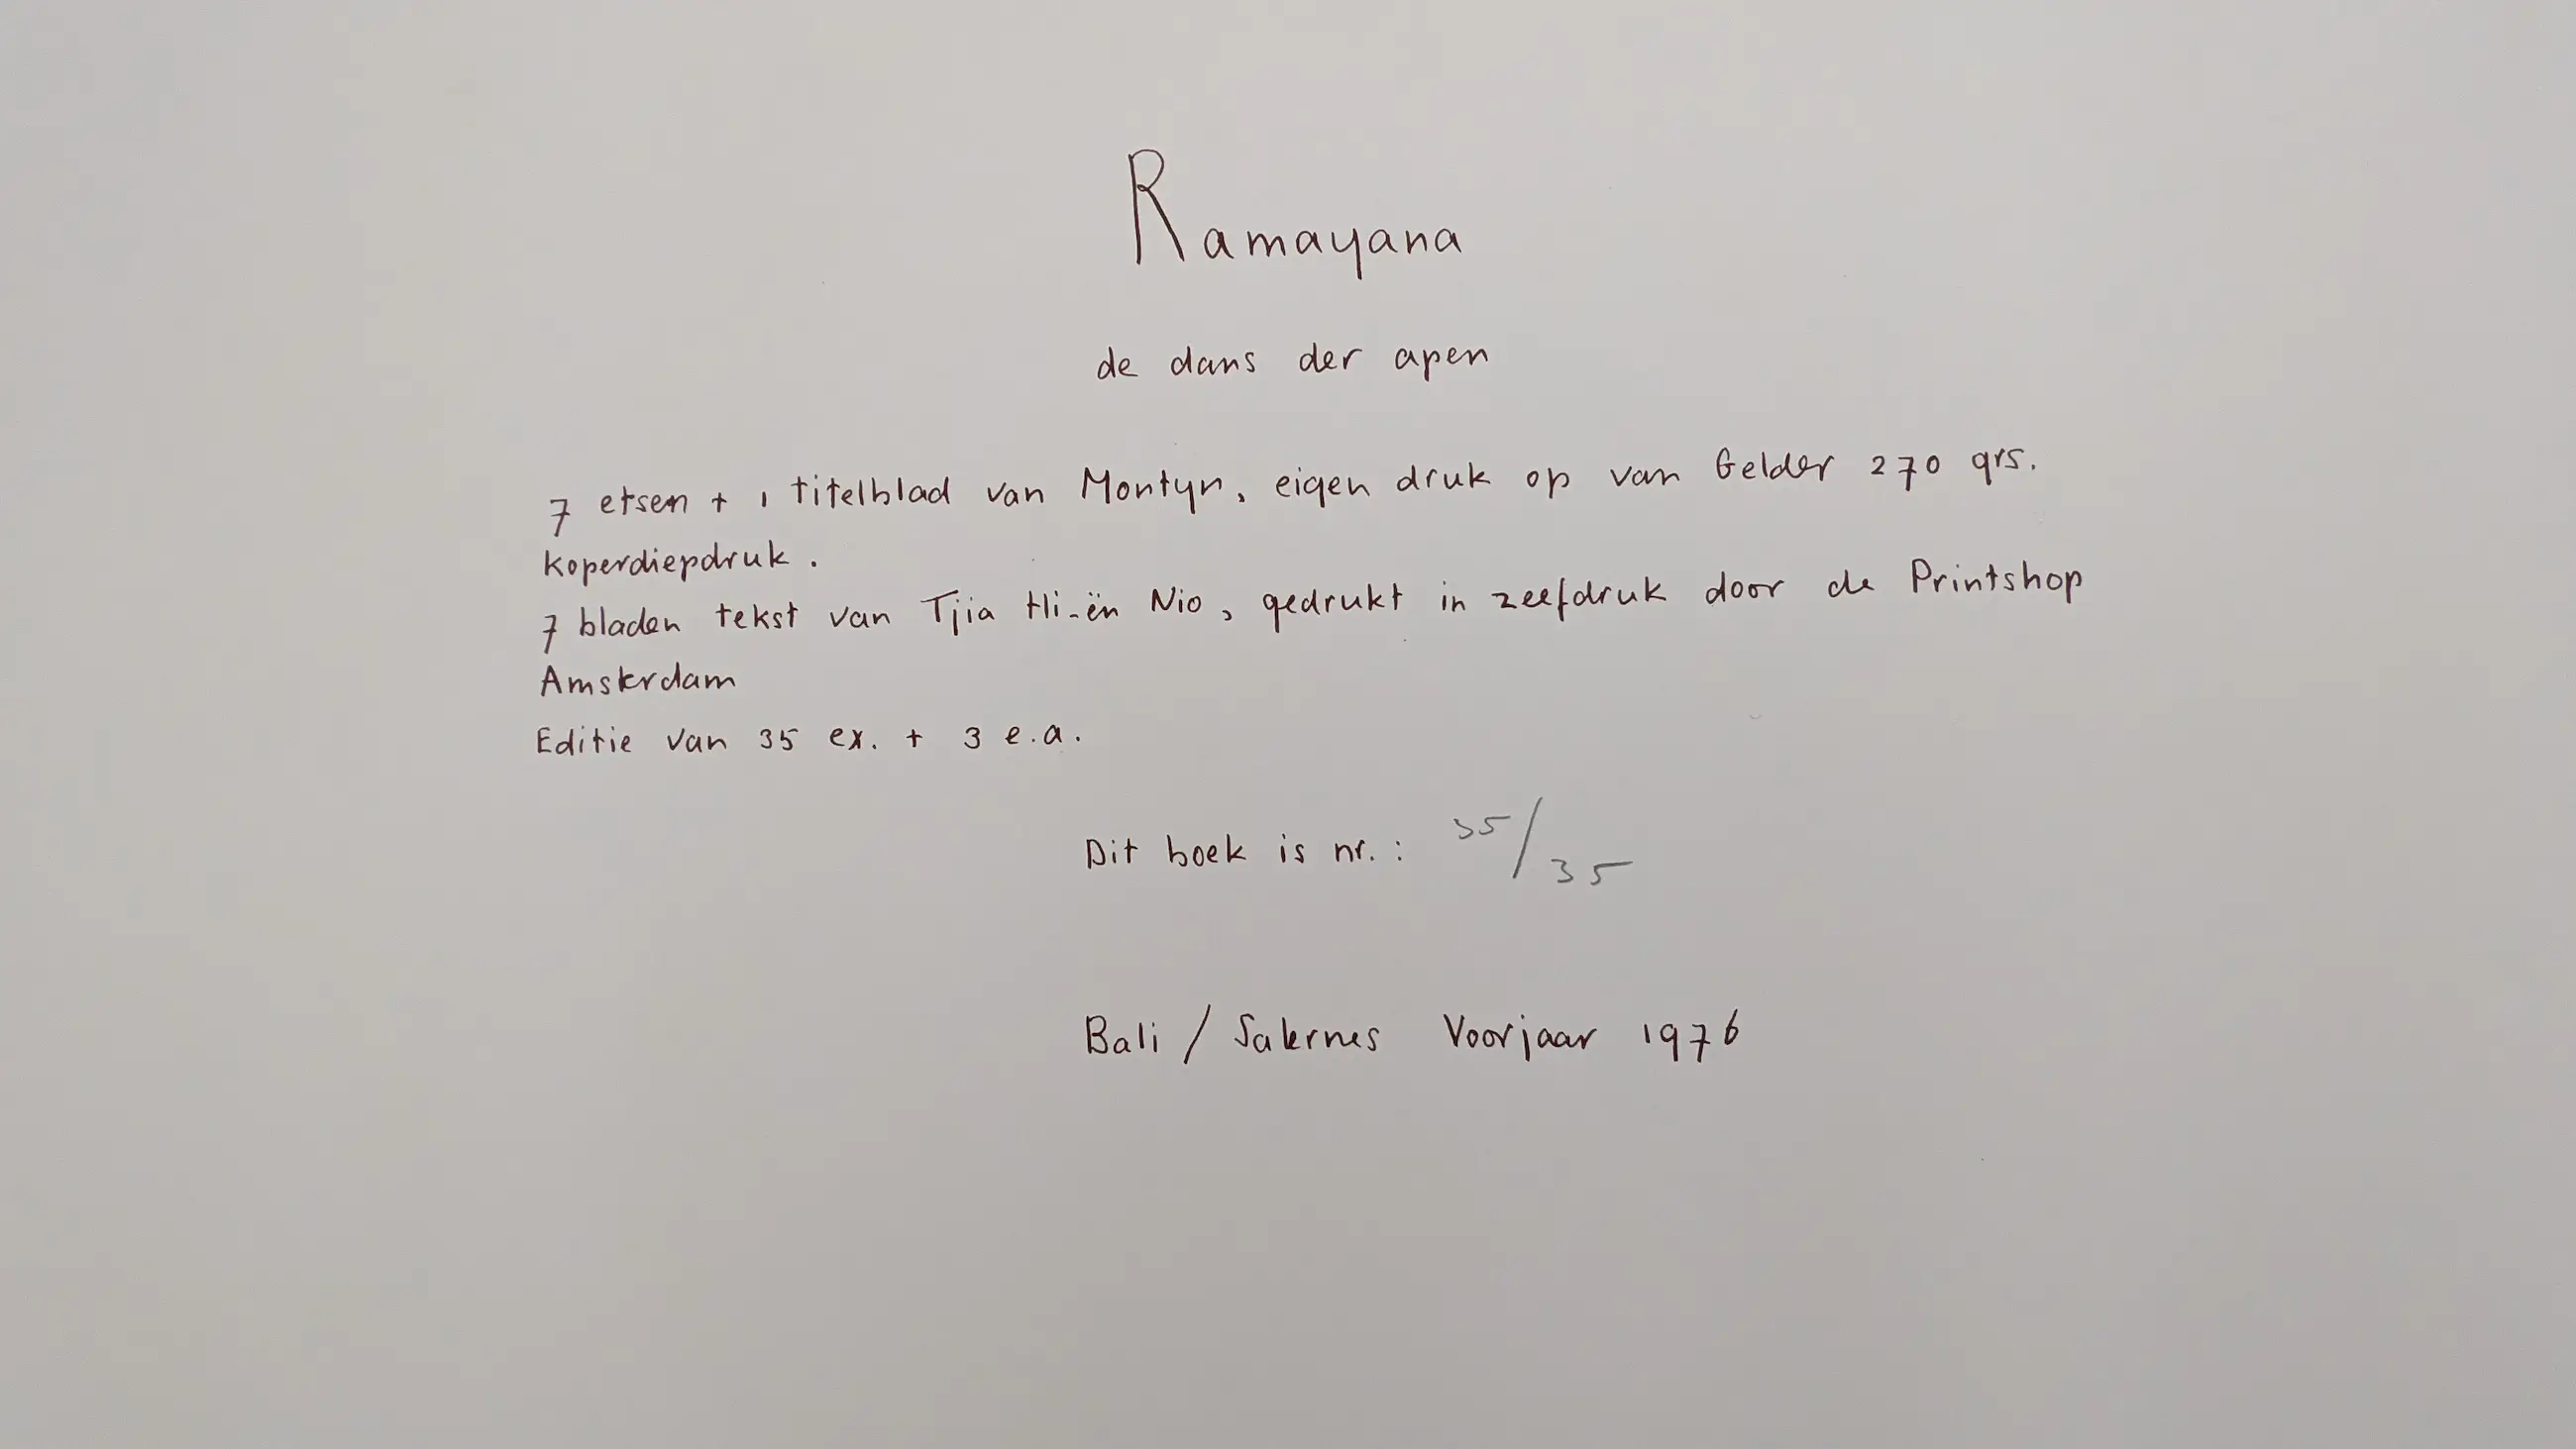 Ramayana
de dans der apen
7 etsen + 1 titelblad van Montyn, eigen druk op van Gelder 270 grs.
koperdiepdruk.
7 bladen tekst van Tjia Hi-ën Nio, gedrukt in zeefdruk door de Printshop
Amsterdam
Editie van 35 ex. + 3 e.a.
Dit boek is nr.: 35/35
Bali / Salernes Voorjaar 1976